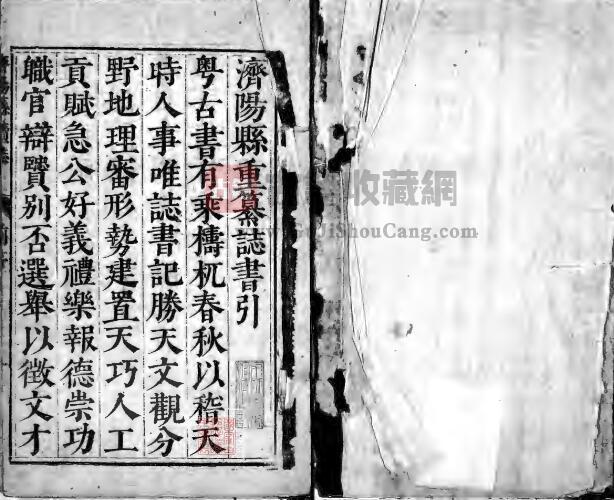 濟陽縣重纂誌書引
粤古書有乘檮杌春秋以稽天
時人事唯誌書記勝天文觀分
野地理審形勢建置天巧人工
貢賦急公好義禮樂報德崇功
職官辯賢別否選舉以徵文才
收藏網
JiShouCang.com